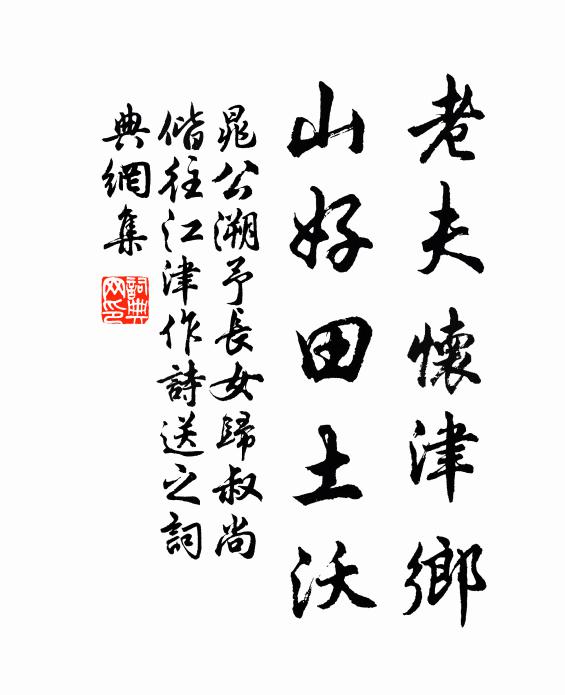 老夫懷津鄉
山好田土沃
晁公溯予長女歸叔尚
偕往江津作詩送之詞
典網集
詞典網印